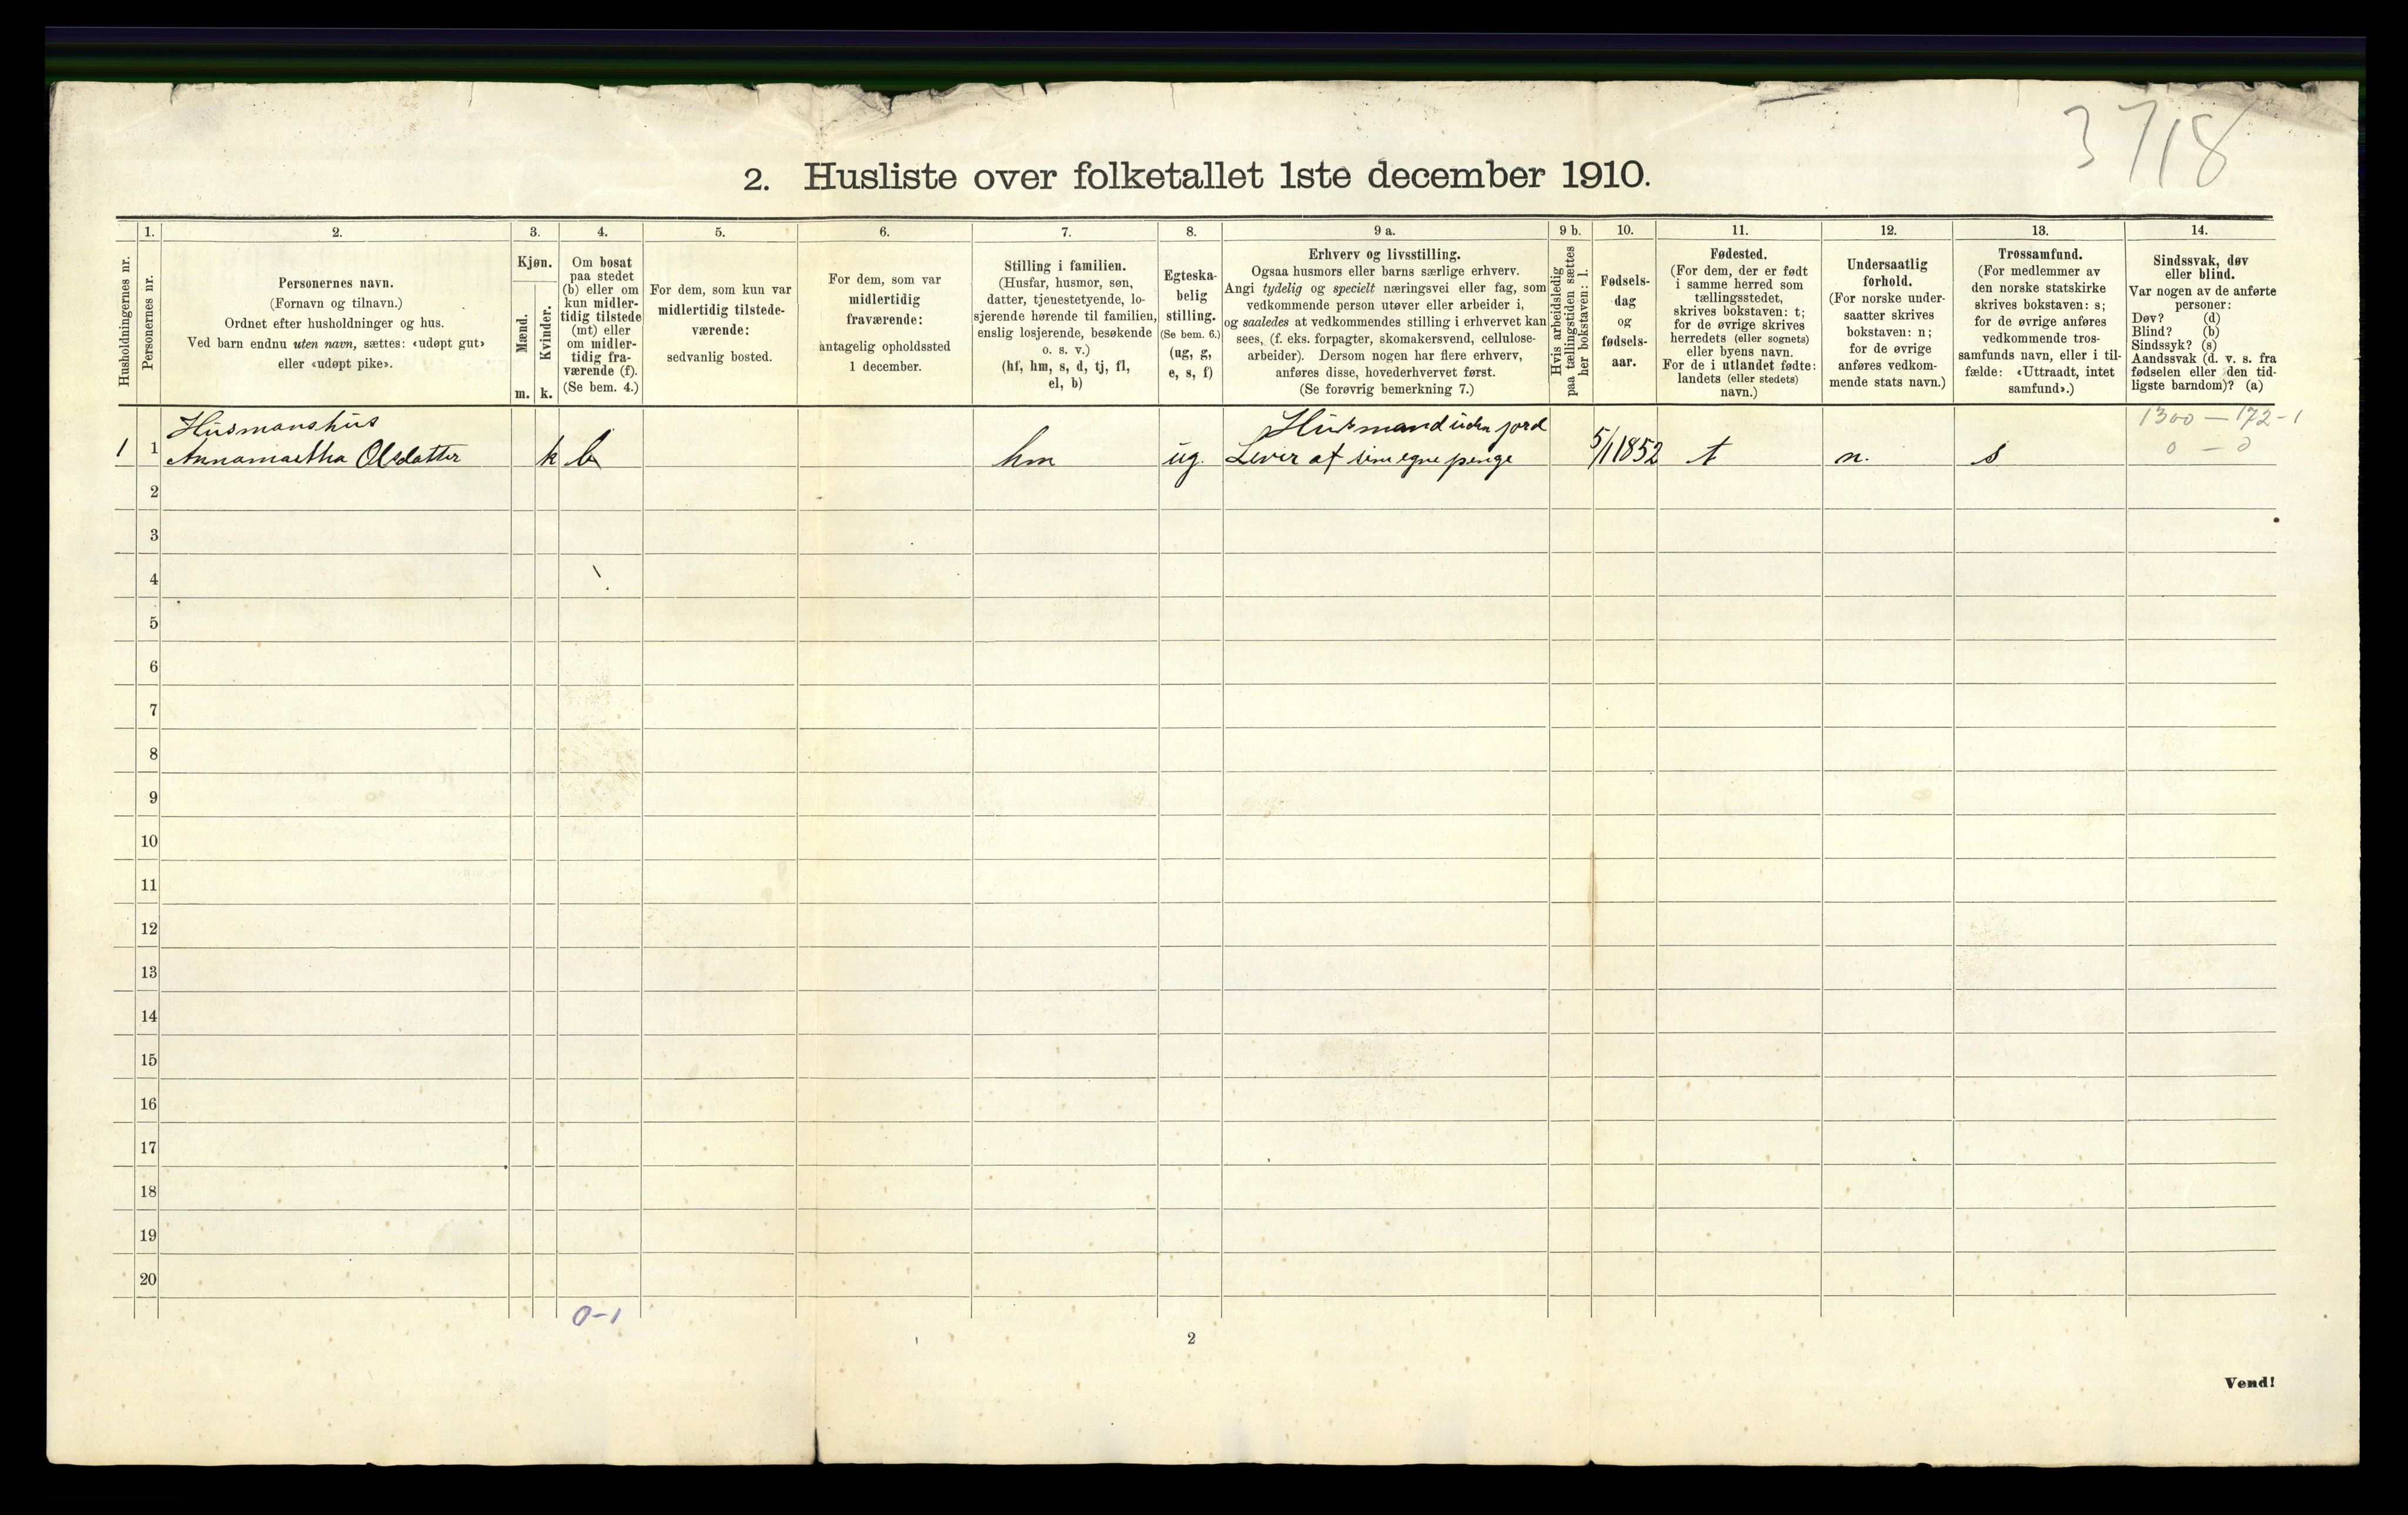 3718
2. Husliste over folketallet 1ste december 1910.
Husholdningernes nr.
1.
Personernes nr.
2.
Personernes navn.
(Fornavn og tilnavn.)
Ordnet efter husholdninger og hus.
Ved barn endnu uten navn, sættes: «udøpt gut»
eller «udøpt pike».
3.
Kjøn.
Mænd.
m.
Kvinder.
k.
4.
Om bosat
paa stedet
(b) eller om
kun midler-
tidig tilstede
(mt) eller
om midler-
tidig fra-
værende (f).
(Se bem. 4.)
5.
For dem, som kun var
midlertidig tilstede-
værende:
sedvanlig bosted.
6.
For dem, som var
midlertidig
fraværende:
antagelig opholdssted
1 december.
7.
Stilling i familien.
(Husfar, husmor, søn,
datter, tjenestetyende, lo-
sjerende hørende til familien,
enslig losjerende, besøkende
o. s. v.)
(hf, hm, s, d, tj, fl,
el, b)
8.
Egteska-
belig
stilling.
(Se bem. 6.)
(ug, g,
e, s, f)
9 a.
Erhverv og livsstilling.
Ogsaa husmors eller barns særlige erhverv.
Angi tydelig og specielt næringsvei eller fag, som
vedkommende person utøver eller arbeider i,
og saaledes at vedkommendes stilling i erhvervet kan
sees, (f. eks. forpagter, skomakersvend, cellulose-
arbeider). Dersom nogen har flere erhverv,
anføres disse, hovederhvervet først.
(Se forøvrig bemerkning 7.)
9 b.
Hvis arbeidsledig
paa tællingstiden sættes
her bokstaven: l.
10.
Fødsels-
dag
og
fødsels-
aar.
11.
Fødested.
(For dem, der er født
i samme herred som
tællingsstedet,
skrives bokstaven: t;
for de øvrige skrives
herredets (eller sognets)
eller byens navn.
For de i utlandet fødte:
landets (eller stedets)
navn.)
12.
Undersaatlig
forhold.
(For norske under-
saatter skrives
bokstaven: n;
for de øvrige
anføres vedkom-
mende stats navn.)
13.
Trossamfund.
(For medlemmer av
den norske statskirke
skrives bokstaven: s;
for de øvrige anføres
vedkommende tros-
samfunds navn, eller i til-
fælde: «Uttraadt, intet
samfund».)
14.
Sindssvak, døv
eller blind.
Var nogen av de anførte
personer:
Døv? (d)
Blind? (b)
Sindssyk? (s)
Aandssvak (d. v. s. fra
fødselen eller den tid-
ligste barndom)? (a)
Husmanshus Husmand uden jord 1300 — 172-1
1 1 Annamartha Olsdatter k b hm ug. Lever af sine egne penge 5/1 1852 t n. s 0 — 0
2
3
4
5
6
7
8
9
10
11
12
13
14
15
16
17
18
19
20
0-1
2
Vend!